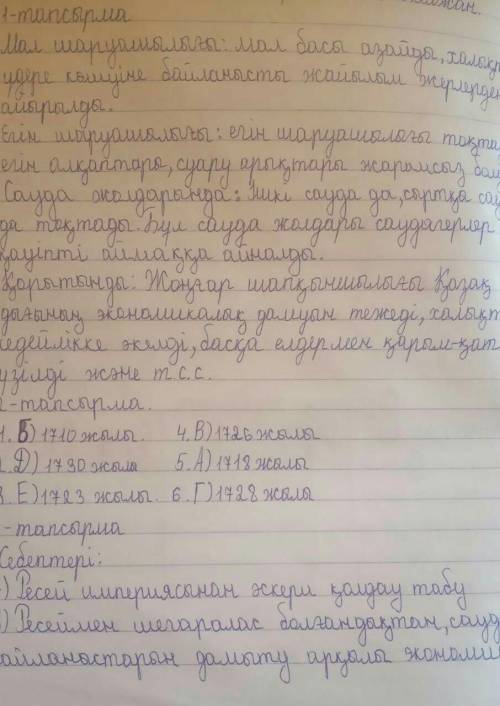 1-тапсырма
Мал шаруашылығы: мал басы азайды, халық
үдере көшуіне байланысты жайылым жерлерден
айырылды.
Егін шаруашылығы: егін шаруашылығы тоқта
егін алқаптары, суару арықтары жарамсыз бол
Сауда жолдарында: Ішкі сауда да, сыртқа сау
да тоқтады. Бұл сауда жолдары саудагерлер
қауіпті аймаққа айналды.
Қорытынды: Жоңғар шапқыншылығы Қазақ
дығының экономикалық дамуын тежеді, халықт
едейлікке әкелді, басқа елдермен қарым-қат
үзілді және т.с.с.
2-тапсырма.
1. Б) 1710 жылы. 4. В) 1726 жылы
2. Д) 1730 жыла 5. А) 1718 жылы
3. Е) 1723 жылы. 6. Г) 1728 жылы
-тапсырма
Себептері:
) Ресей империясынан әскери қолдау табу
) Ресеймен шегаралас болғандықтан, сауд
айланыстарын дамыту арқылы экономи